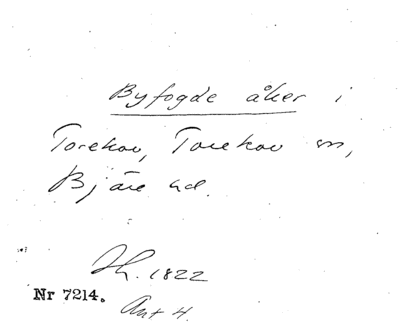 Byfogde åker i
Torekov, Torekov sn,
Bjäre hd.
Ih. 1822
Nr 7214.
Ant 4.